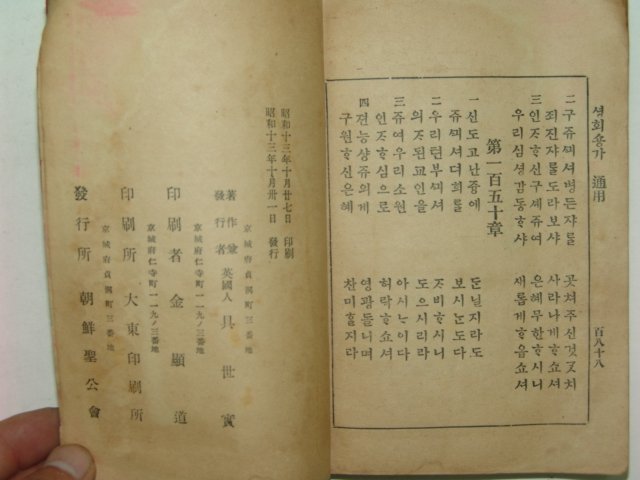 셩회송가 通用 百八十八
二 구쥬ᄭᅴ셔병든쟈를 곳쳐주신것ᄀᆞᆺ치
죄진쟈를도라보샤 사라나게ᄒᆞ쇼셔
三 인ᄌᆞᄒᆞ신구세쥬여 은혜무한ᄒᆞ시니
우리심셩감동ᄒᆞ샤 새롭게ᄒᆞ옵쇼셔
第一百五十章
一 신도고난즁에 둔닐지라도
쥬ᄭᅴ셔뎌희를 보시ᄂᆞᆫ도다
二 우리텬부ᄭᅴ셔 ᄌᆞ비ᄒᆞ시니
의지된교인을 도으시리라
三 쥬여우리소원 아시ᄂᆞ이다
인ᄌᆞᄒᆞ심으로 허락ᄒᆞ쇼셔
四 젼능샹쥬의게 영광돌니며
구원ᄒᆞ신은혜 찬미ᄒᆞᆯ지라
昭和十三年十月廿七日 印刷
昭和十三年十月卅一日 發行
京城府貞洞町三番地
著作兼發行者 英國人 具世實
京城府仁寺町一一九ノ三番地
印刷者 金顯道
京城府仁寺町一一九ノ三番地
印刷所 大東印刷所
京城府貞洞町三番地
發行所 朝鮮聖公會